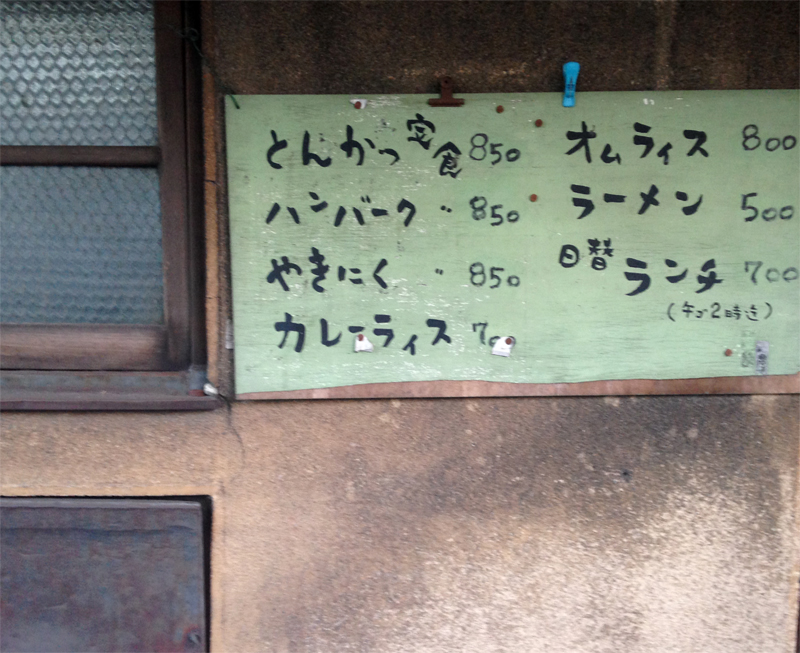 とんかつ定食 850
ハンバーグ 〃 850
やきにく 〃 850
カレーライス 700
オムライス 800
ラーメン 500
日替ランチ 700
(午ゴ2時迄)